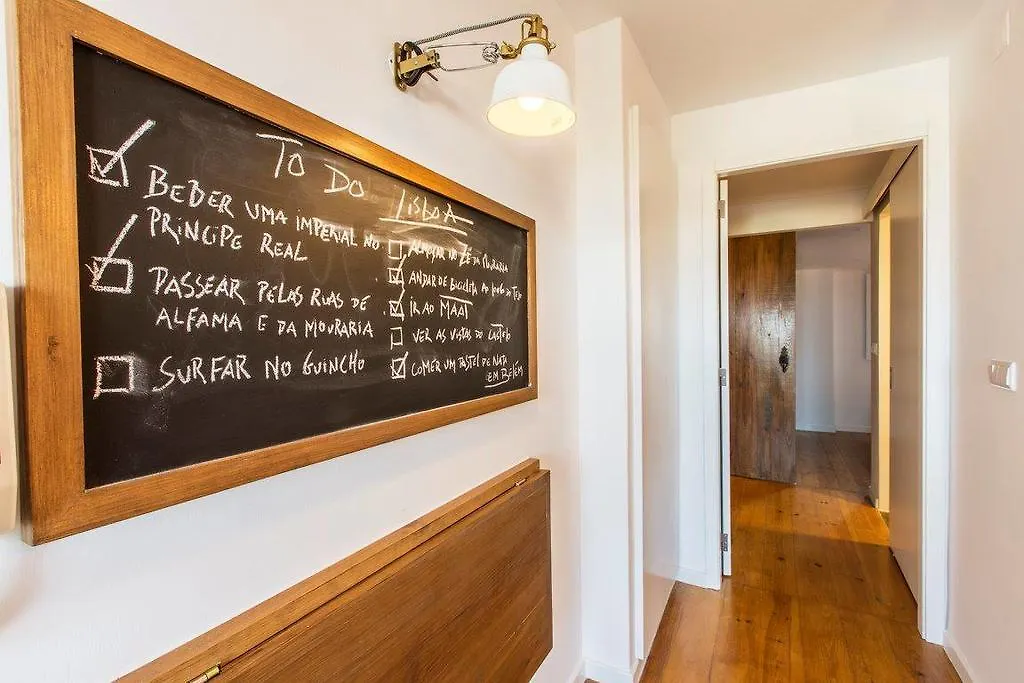 TO DO LISBOA
BEBER UMA IMPERIAL NO
PRINCIPE REAL
PASSEAR PELAS RUAS DE
ALFAMA E DA MOURARIA
SURFAR NO GUINCHO
ALMOÇAR NO ZÉ DA MOURARIA
ANDAR DE BICICLETA AO LONGO DO TEJO
IR AO MAAT
VER AS VISTAS DO CASTELO
COMER UM PASTEL DE NATA
EM BELÉM